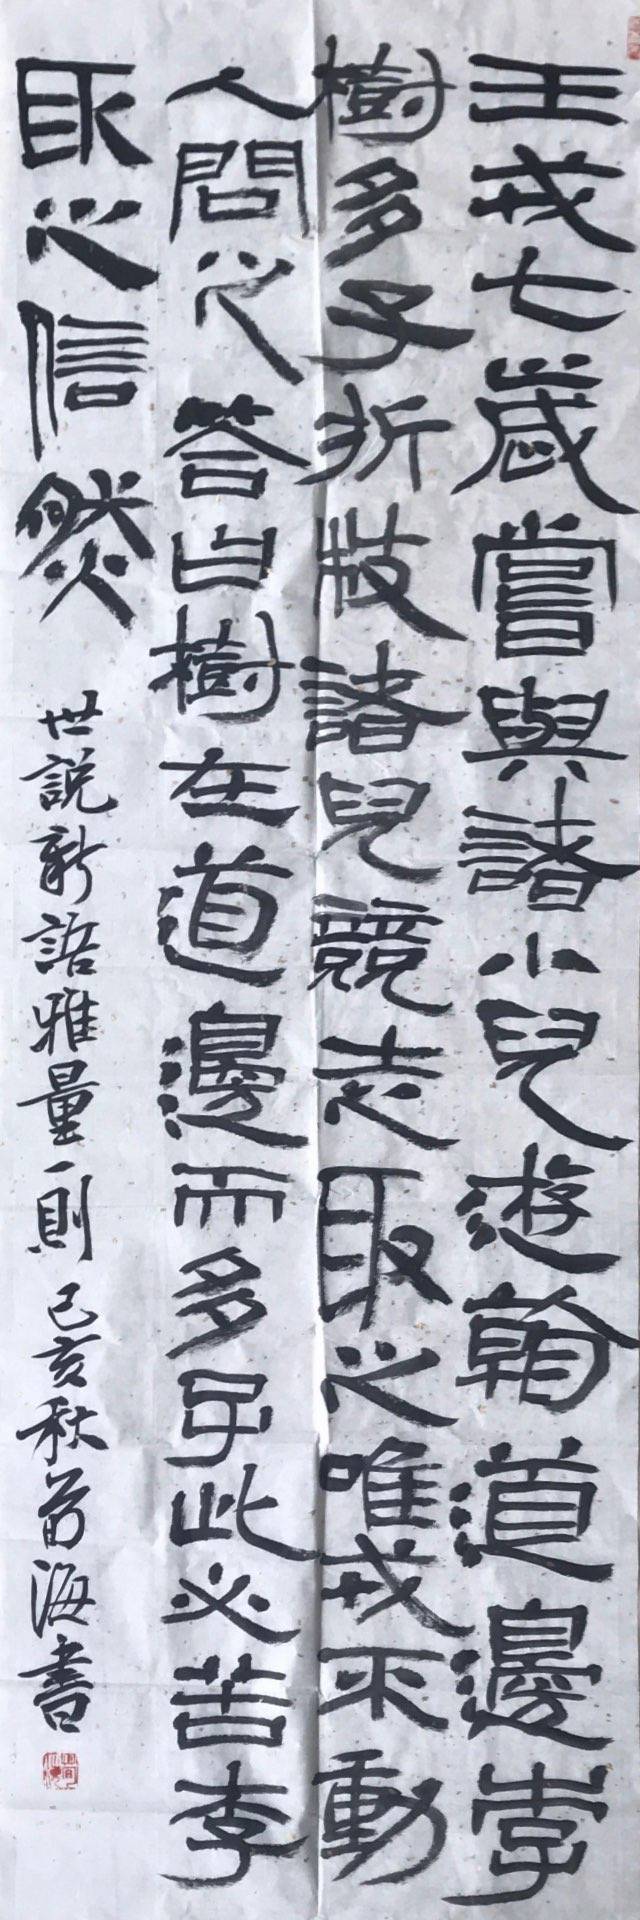 王戎七歲嘗與諸小兒遊看道邊李
樹多子折枝諸兒競走取之唯戎不動
人問之答曰樹在道邊而多子此必苦李
取之信然
世說新語雅量一則 己亥秋 海書